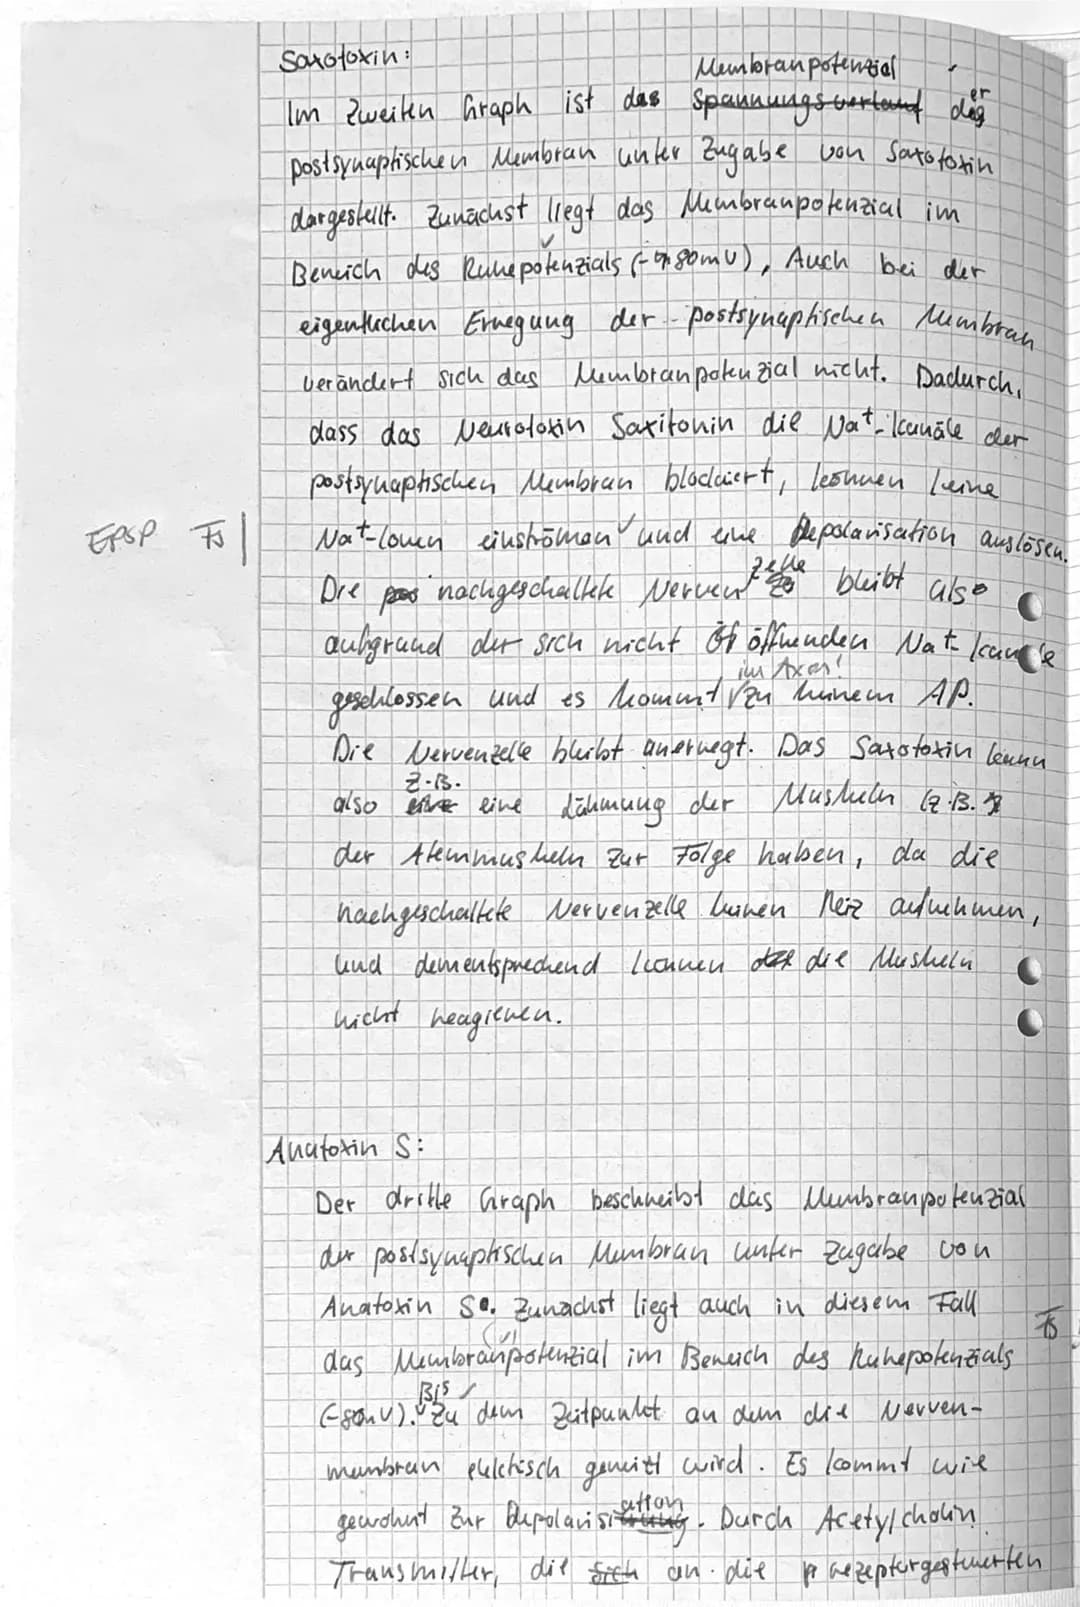 Saxotoxin:
Membranpotenzial
Im zweiten Graph ist das Spannungsverlauf der
postsynaptischen Membran unter Zugabe von Saxotoxin
dargestellt. Zunächst liegt das Membranpotenzial im
Bereich des Ruhepotenzials (-80mV), Auch bei der
eigentlichen Erregung der postsynaptischen Membran
verändert sich das Membranpotenzial nicht. Dadurch,
dass das Neurotoxin Saxitonin die Na+-kanäle der
postsynaptischen Membran blockiert, können keine
EPSP FS Na+-Ionen einströmen und eine Depolarisation auslösen.
Die nachgeschaltete Nervenzelle bleibt also
aufgrund der sich nicht öffnenden Na+-kanäle
im Axon!
geschlossen und es kommt zu keinem AP.
Die Nervenzelle bleibt unerregt. Das Saxotoxin kann
z.B.
also eine eine Lähmung der Muskeln (z.B.
der Atemmuskeln zur Folge haben, da die
nachgeschaltete Nervenzelle keinen Reiz aufnehmen,
und dementsprechend können die Muskeln
nicht reagieren.
Anatoxin S:
Der dritte Graph beschreibt das Membranpotenzial
der postsynaptischen Membran unter Zugabe von
Anatoxin S. Zunächst liegt auch in diesem Fall
FS
das Membranpotenzial im Bereich des Ruhepotenzials
Bis
(-80mV). Zu dem Zeitpunkt an dem die Nerven-
membran elektrisch gereizt wird. Es kommt wie
ation
gewohnt zur Depolarisierung. Durch Acetylcholin
Transmitter, die sich an die rezeptorgesteuerten